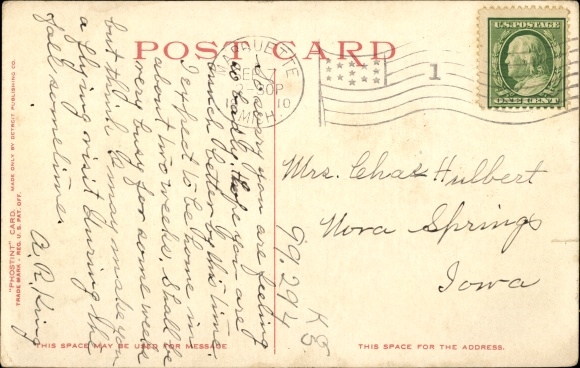 POST CARD
MARQUETTE
SEP 7
2-30P
1910
MICH.
1
U.S. POSTAGE
ONE CENT
So sorry you are feeling
so badly. Hope you are
much better by this time.
I expect to be home in
about two weeks. Shall be
very busy for some weeks
but think I may make you
a flying visit during the
fall sometime.
A. R. King
Mrs. Chas Hulbert
Nora Springs
Iowa
99.294
"PHOSTINT" CARD. MADE ONLY BY DETROIT PUBLISHING CO.
TRADE MARK - REG. U. S. PAT. OFF.
THIS SPACE MAY BE USED FOR MESSAGE
THIS SPACE FOR THE ADDRESS.